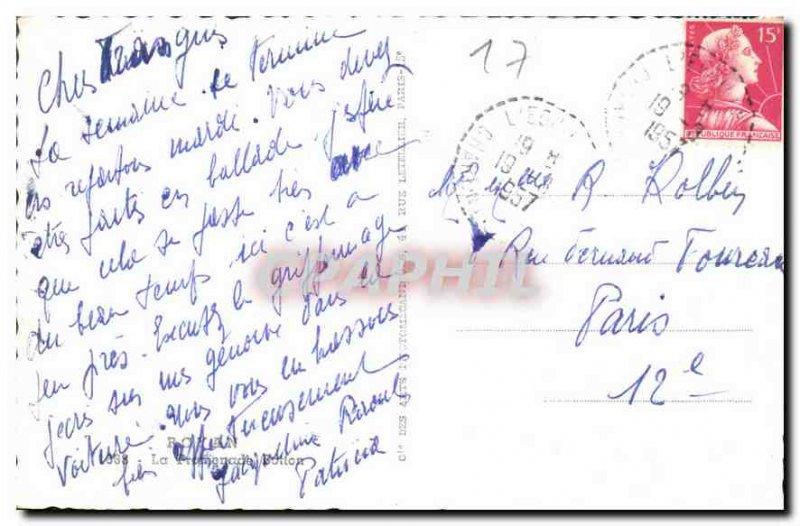 Chers
La semaine se termine
repartons mardi. Vous devez
êtes en ballade. J'espère
que cela se passe très avec
du beau temps ici c'est à
peu près. Excusez le griffonnage
j'écris sur mes genoux dans la
voiture. nous vous embrassons
affectueusement
Jacqueline Raoul
Patricia
ROYAN
- La Promenade Botton
Cie DES ARTS PHOTOMÉCANIQUES, 44, RUE LETELLIER, PARIS-15e
CPAPHIL
17
15F
REPUBLIQUE FRANÇAISE
19
1957
M. et Mme R Kolbey
Rue Fernand Foureau
Paris
12e